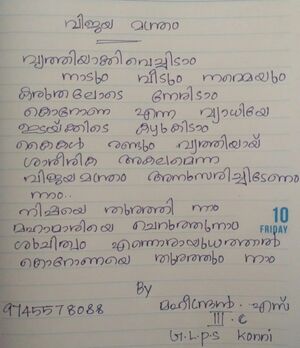 വിജയ മന്ത്രം
വൃത്തിയാക്കിവെച്ചിടാം
നാടും വീടും നമ്മെയും
കരുതലോടെ നേരിടാം
കൊറോണ എന്ന വ്യാധിയേ
ഇടയ്ക്കിടെ കഴുകിടാം
കൈകൾ രണ്ടും വൃത്തിയായ്
ശാരീരിക അകലമെന്ന
വിജയമന്ത്രം അനുസരിച്ചിടേണം
നാം..
നിപ്പയെ തുരത്തി നാം
മഹാമാരിയെ ചെറുത്തുനാം
ശുചിത്വം എന്നൊരായുധത്താൽ
കൊറോണയെ തുരത്തും നാം
10
FRIDAY
By
9745578088
മഹീന്ദ്രൻ. എസ്
III. C
G.L.P.S Konni